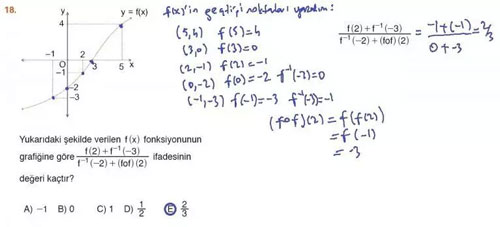 18.
y
y = f(x)
4
-1
2
0
3
5
x
-1
-2
-3
Yukarıdaki şekilde verilen f(x) fonksiyonunun
grafiğine göre f(2)+f⁻¹(-3) / f⁻¹(-2) + (fof)(2) ifadesinin
değeri kaçtır?
A) -1 B) 0 C) 1 D) 1/2 E) 2/3
f(x)'in geçtiği noktaları yazalım:
(5,4) f(5)=4
(3,0) f(3)=0
(2,-1) f(2)=-1
(0,-2) f(0)=-2 f⁻¹(-2)=0
(-1,-3) f(-1)=-3 f⁻¹(-3)=-1
(fof)(2) = f(f(2))
= f(-1)
= -3
f(2)+f⁻¹(-3) / f⁻¹(-2) + (fof)(2) = -1+(-1) / 0+-3 = 2/3